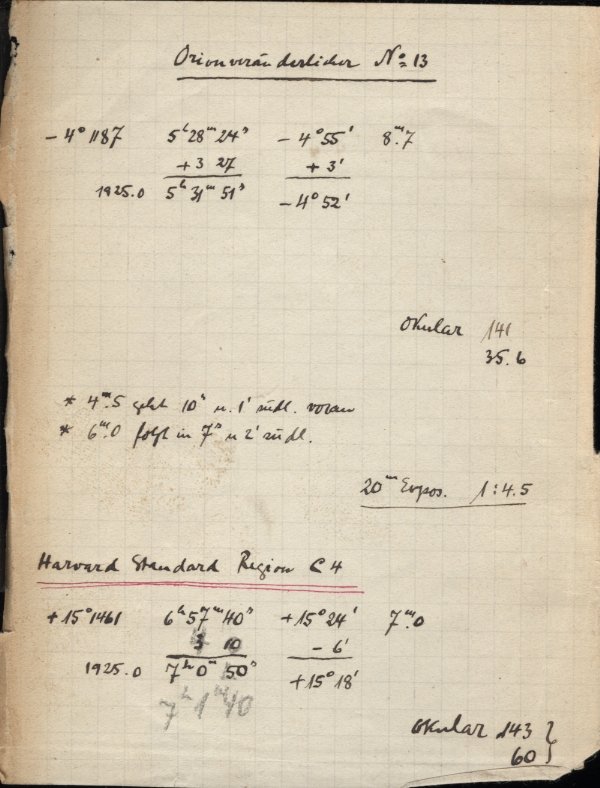 Orionveränderlicher No 13
-4° 1187 5h 28m 24s -4° 55' 8m.7
+3 27 +3'
1925.0 5h 31m 51s -4° 52'
Okular 141
35.6
* 4m.5 geht 10s u. 1' südl. voran
* 6m.0 folgt in 7s u 2' südl.
20m Expos. 1:4.5
Harvard Standard Region C 4
+15° 1461 6h 57m 40s +15° 24' 7m.0
3 10 -6'
1925.0 7h 0m 50s +15° 18'
7h 1m 40
Okular 143 }
60 }